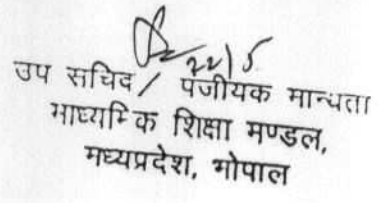 22/5
उप सचिव / पंजीयक मान्यता
माध्यमिक शिक्षा मण्डल,
मध्यप्रदेश, भोपाल